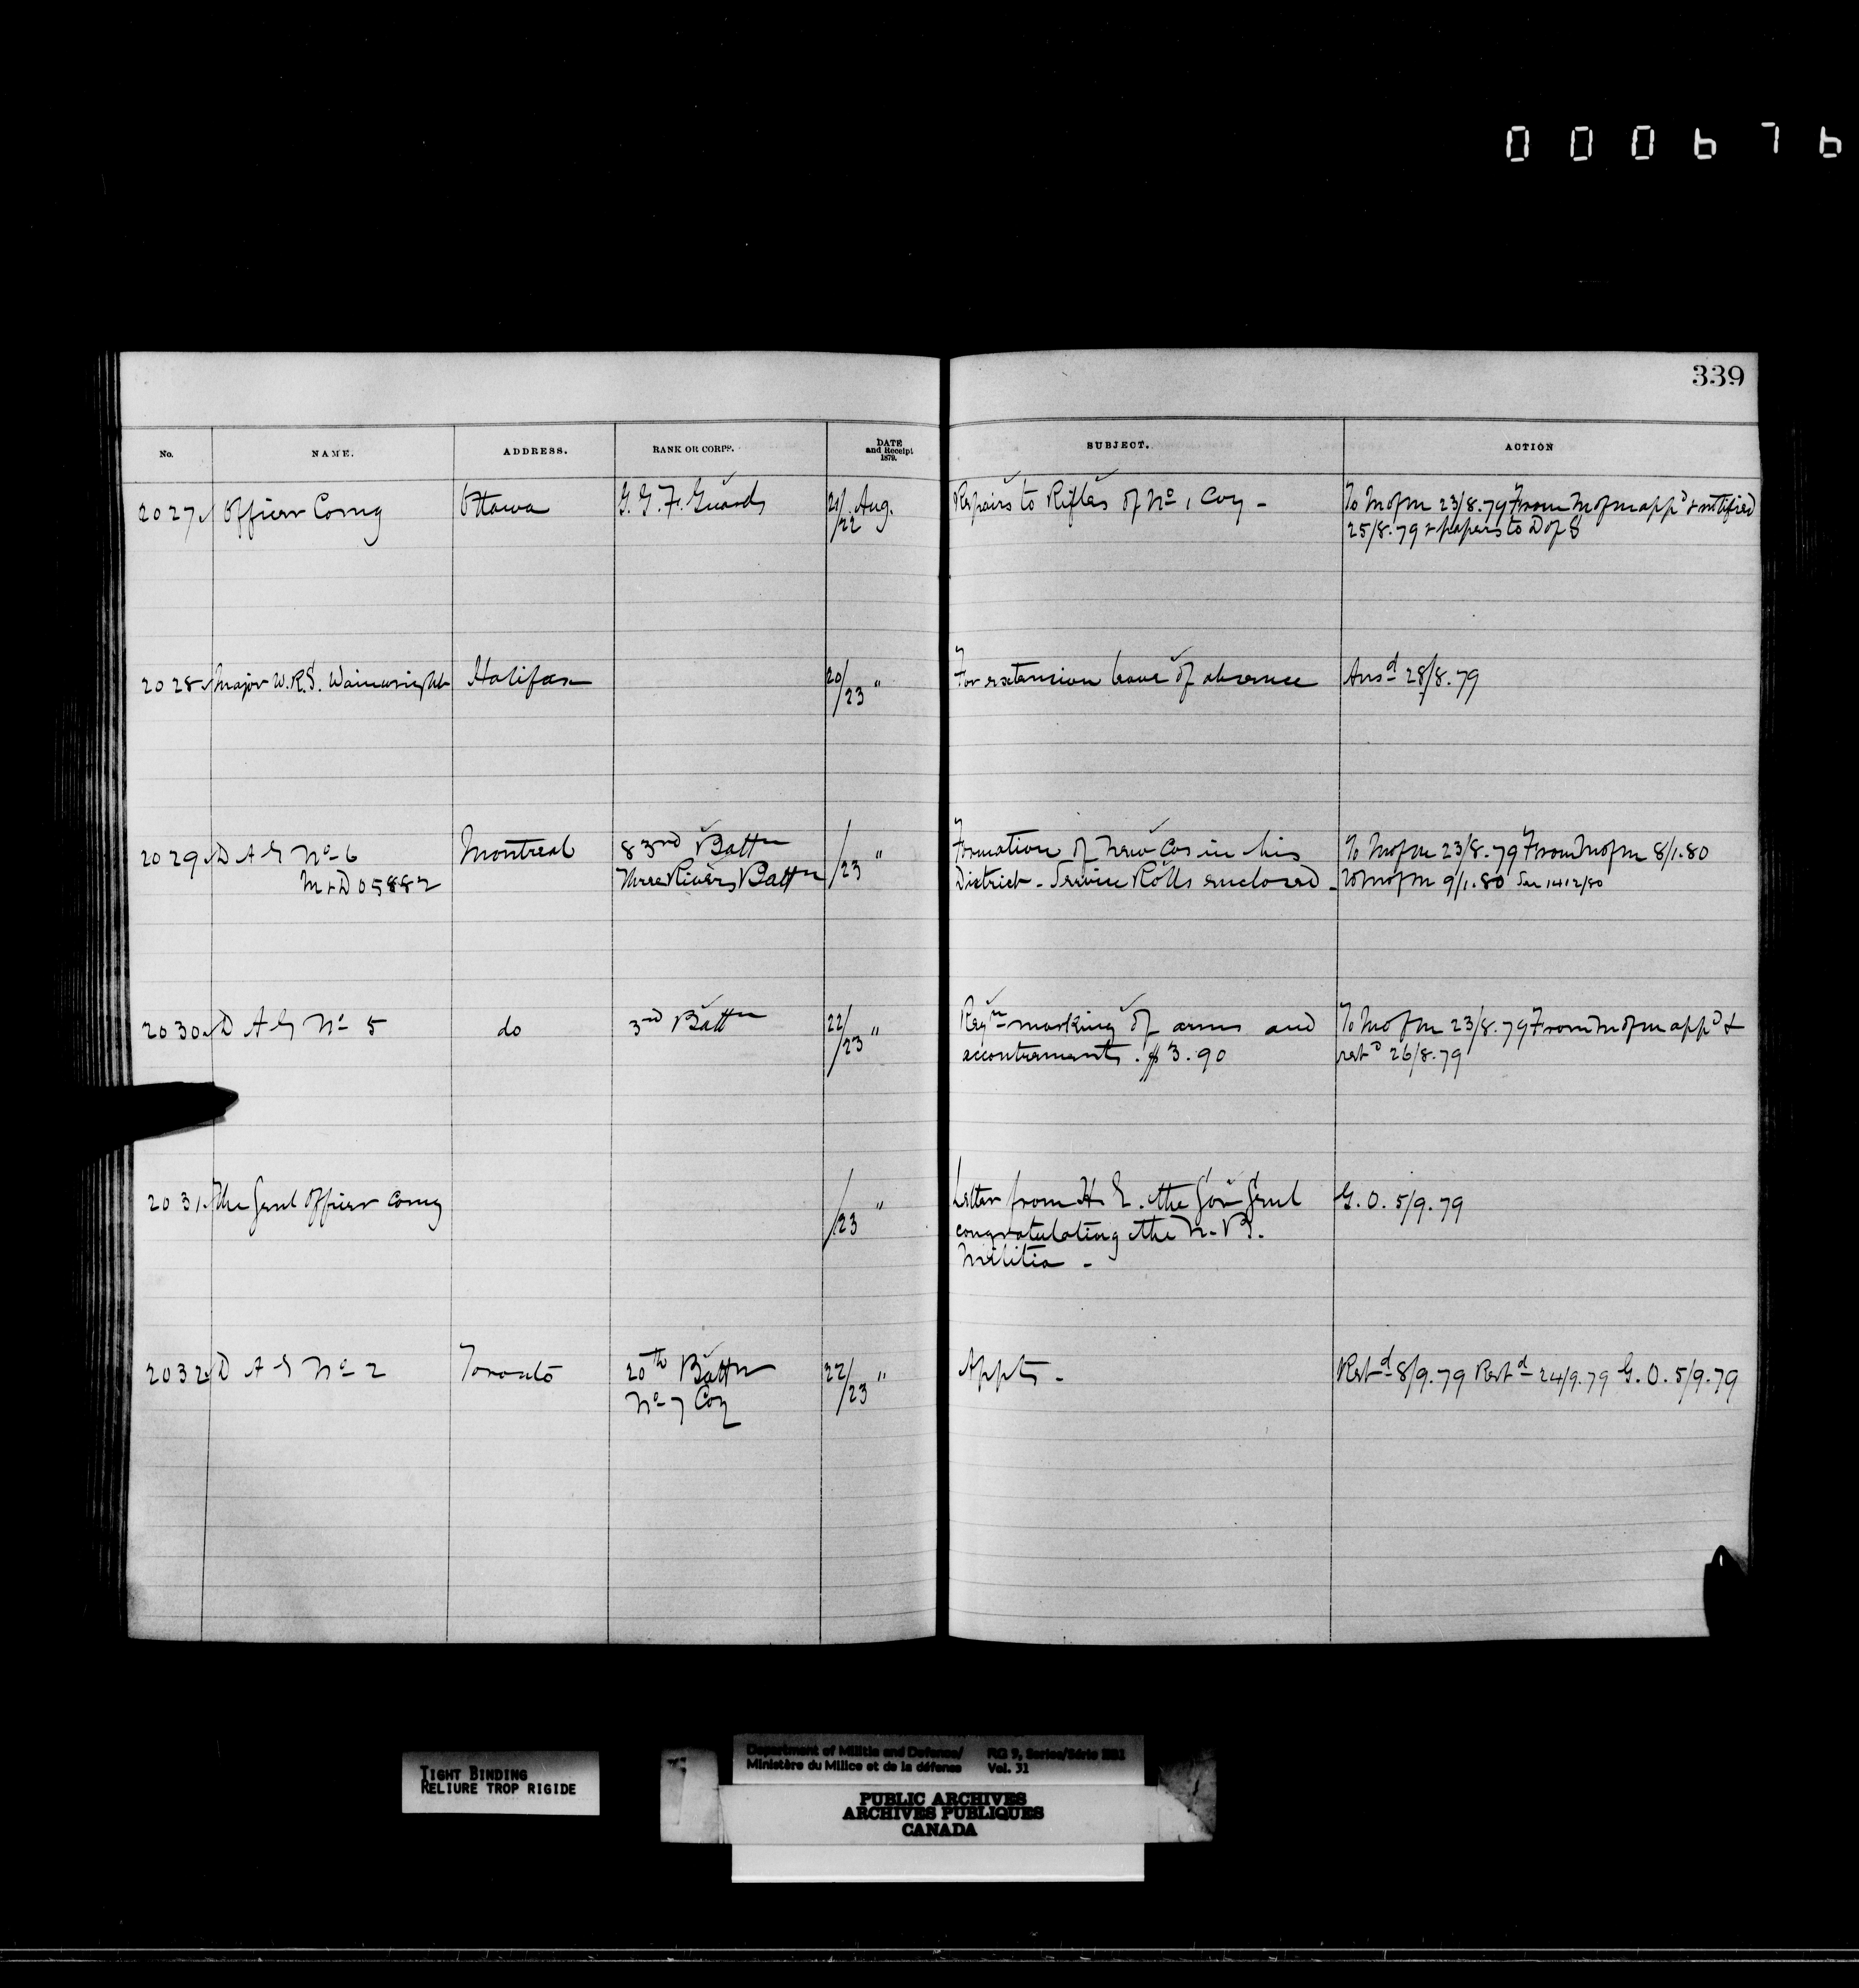 000676
339
No. NAME. ADDRESS. RANK OR CORPS. DATE and Receipt 1879. SUBJECT. ACTION
2027 Officer Comg Ottawa G. G. F. Guards 21/22 Aug. Repairs to Rifles of No 1 Coy - To M of M 23/8.79 From M of M appd & notified
25/8.79 & papers to D of S
2028 Major W.R.S. Wainwright Halifax 20/23 " For extension leave of absence Ansd 28/8.79
2029 D A G No 6 Montreal 83rd Battn /23 " Formation of new Cos in his To M of M 23/8.79 From M of M 8/1.80
M & D 05882 Three Rivers Battn District - Service Rolls enclosed - To M of M 9/1.80 See 1412/80
2030 D A G No 5 do 3rd Battn 22/23 " Reqn marking of arms and To M of M 23/8.79 From M of M appd &
accoutrements. $3.90 retd 26/8.79
2031 The Genl Officer Comg /23 " Letter from H. E. the Gov Genl G. O. 5/9.79
congratulating the N. B.
Militia -
2032 D A G No 2 Toronto 20th Battn 22/23 " Appts - Retd 8/9.79 Retd 24/9.79 G. O. 5/9.79
No 7 Coy
TIGHT BINDING
RELIURE TROP RIGIDE
Department of Militia and Defence/ RG 9, Series/Série
Ministère du Milice et de la défense Vol. 31
PUBLIC ARCHIVES
ARCHIVES PUBLIQUES
CANADA